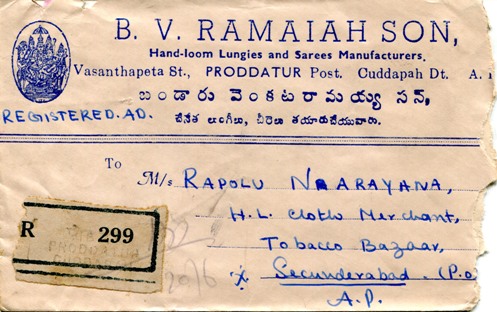 B. V. RAMAIAH SON,
Hand-loom Lungies and Sarees Manufacturers.
Vasanthapeta St., PRODDATUR Post. Cuddapah Dt. A.
బండారు వెంకటరామయ్య సన్,
చేనేత లుంగీలు, చీరెలు తయారుచేయువారు.
REGISTERED. AD.
To
M/s RAPOLU NAARAYANA,
H.L. Cloth Merchant,
Tobacco Bazaar,
Secunderabad. (P.O
A.P.
R 299
PRODDATUR